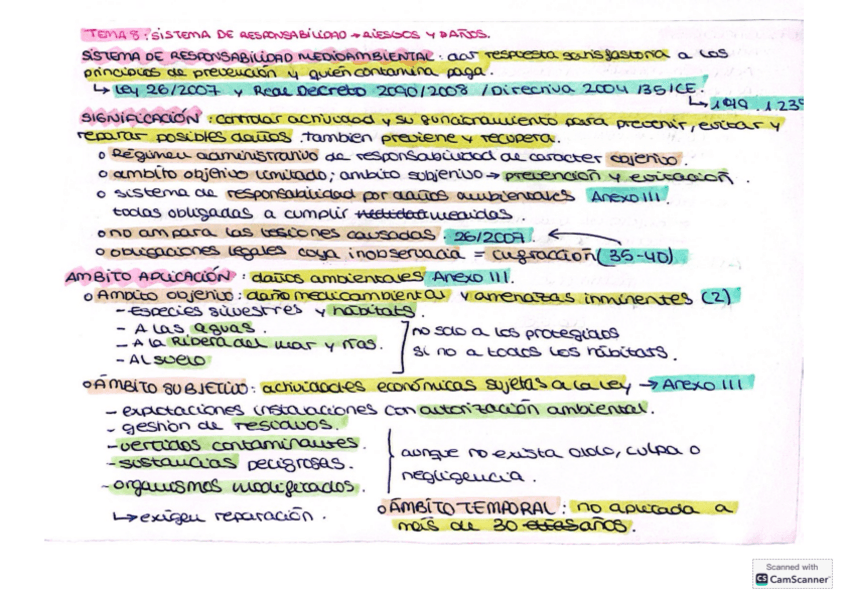 TEMA 8: SISTEMA DE RESPONSABILIDAD → RIESGOS Y DAÑOS.
SISTEMA DE RESPONSABILIDAD MEDIOAMBIENTAL: dar respuesta satisfastoria a los
principios de prevención y quien contamina paga.
↳ Ley 26/2007 y Real Decreto 2090/2008 / Directiva 2004/35/CE.
SIGNIFICACIÓN: controlar actividad y su funcionamiento para prevenir, evitar y
reparar posibles daños. también previene y recupera.
o Régimen administrativo de responsabilidad de caracter objetivo.
o ambito objetivo limitado; ambito subjetivo → prevención y evitación.
o sistema de responsabilidad por daños ambientales Anexo III
todas obligadas a cumplir medidas.
o no ampara las lesiones causadas. 26/2007
o obligaciones legales cuya inobservacia = infracción (35-40)
AMBITO APLICACIÓN: daños ambientales Anexo III.
o Ambito objetivo: daño medioambiental y amenazas inminentes (2)
- Especies silvestres y hábitats.
- A las aguas.
- A la Ribera del mar y rías.
- Al suelo
no solo a los protegidos
si no a todos los hábitats.
o ÁMBITO SUBJETIVO: actividades económicas sujetas a la ley → Anexo III
- explotaciones instalaciones con autorización ambiental.
- gestión de residuos.
- vertidos contaminantes.
- sustancias peligrosas.
- organismos modificados.
aunque no exista dolo, culpa o
negligencia.
↳ exigen reparación.
o ÁMBITO TEMPORAL: no aplicada a
más de 30 años.
Scanned with
CS CamScanner